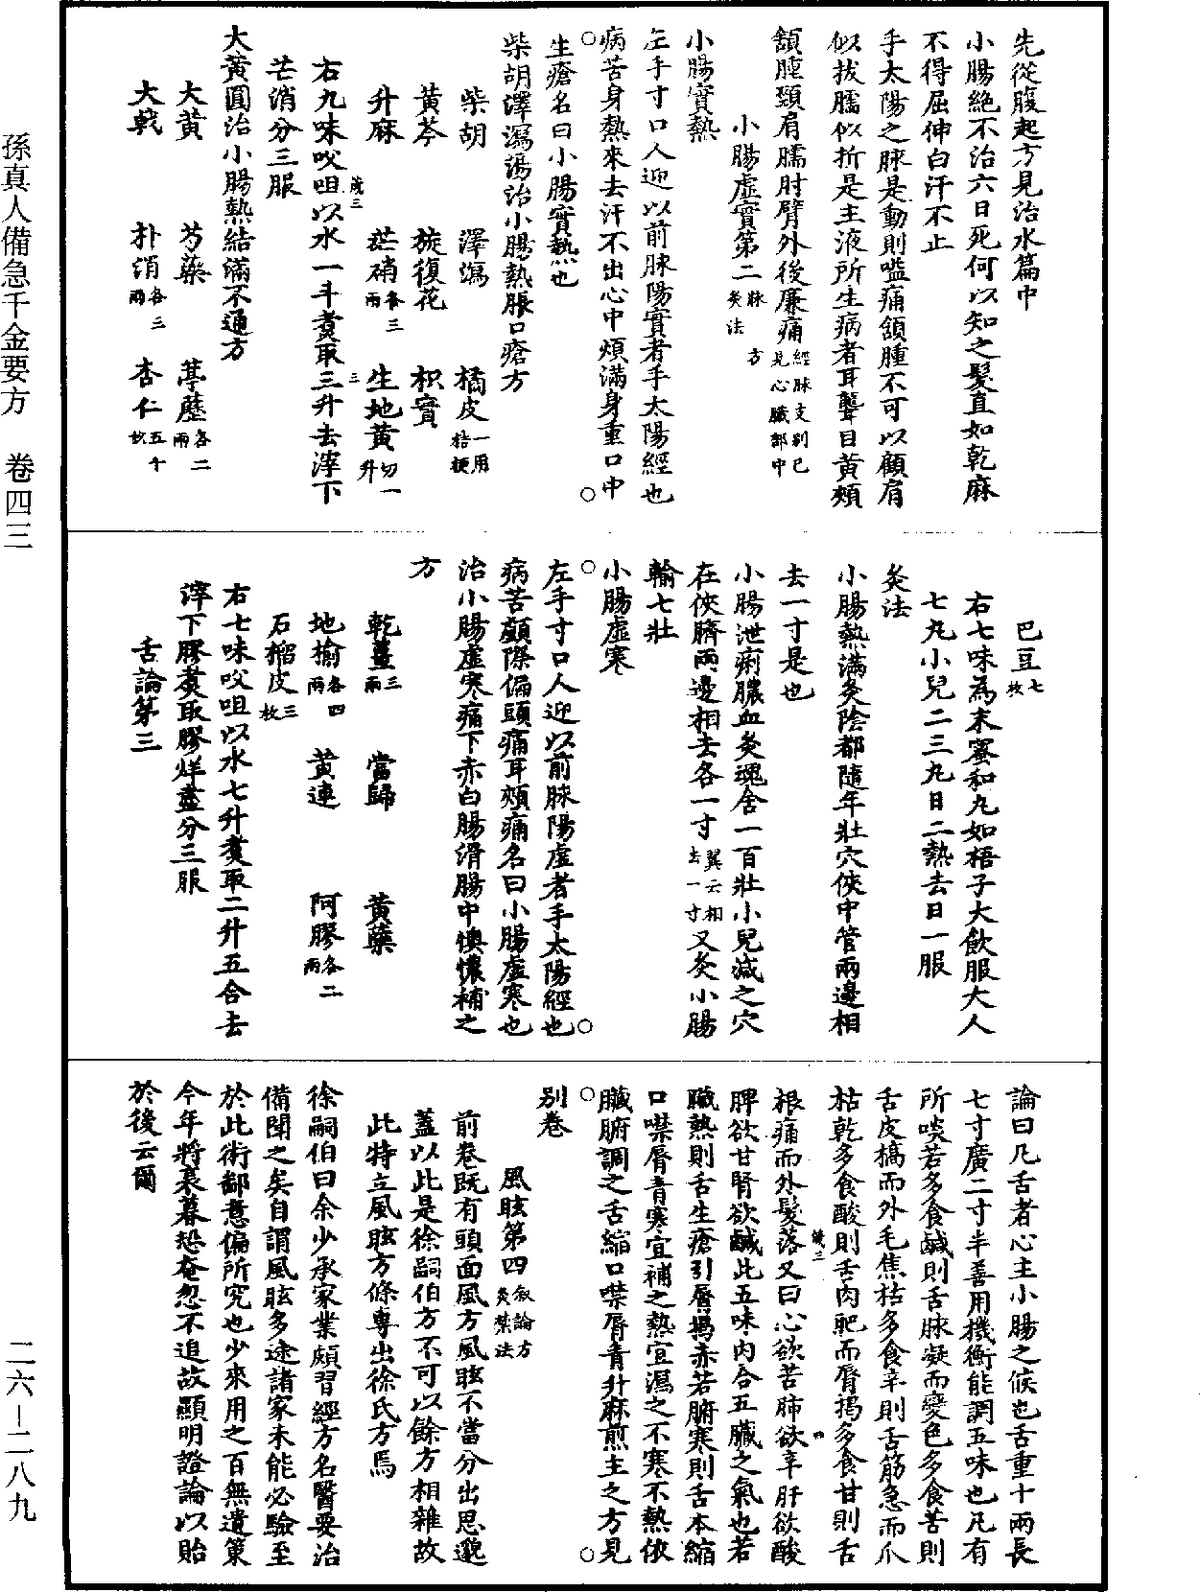 先從腹起方見治水篇中
小腸絕不治六日死何以知之髮直如乾麻
不得屈伸白汗不止
手太陽之脉是動則嗌痛頷腫不可以顧肩
似拔臑似折是主液所生病者耳聾目黃頰
頷腫頸肩臑肘臂外後廉痛經脉支別已見心臟部中
小腸虛實第二脉灸法方
小腸實熱
左手寸口人迎以前脉陽實者手太陽經也
病苦身熱來去汗不出心中煩滿身重口中
生瘡名曰小腸實熱也
柴胡澤瀉湯治小腸熱脹口瘡方
柴胡 澤瀉 橘皮一用桔梗
黃芩 旋復花 枳實
升麻 芒硝各三兩 生地黃切一升
右九味㕮咀以水一斗煑取三升去滓下
芒消分三服
大黃圓治小腸熱結滿不通方
大黃 芍藥 葶藶各二兩
大戟 朴消各三兩 杏仁五十枚
巴豆七枚
右七味為末蜜和丸如梧子大飲服大人
七丸小兒二三丸日二熱去日一服
灸法
小腸熱滿灸陰都隨年壯穴俠中管兩邊相
去一寸是也
小腸泄痢膿血灸魂舍一百壯小兒減之穴
在俠臍兩邊相去各一寸翼云相去一寸又灸小腸
輸七壯
小腸虛寒
左手寸口人迎以前脉陽虛者手太陽經也
病苦顱際偏頭痛耳頰痛名曰小腸虛寒也
治小腸虛寒痛下赤白腸滑腸中懊憹補之
方
乾薑三兩 當歸 黃蘗
地榆各四兩 黃連 阿膠各二兩
石榴皮三枚
右七味㕮咀以水七升煑取二升五合去
滓下膠煑取膠烊盡分三服
舌論第三
論曰凡舌者心主小腸之候也舌重十兩長
七寸廣二寸半善用機衡能調五味也凡有
所啖若多食鹹則舌脉凝而變色多食苦則
舌皮槁而外毛焦枯多食辛則舌筋急而爪
枯乾多食酸則舌肉肥而脣揭多食甘則舌
根痛而外髮落又曰心欲苦肺欲辛肝欲酸
脾欲甘腎欲鹹此五味內合五臟之氣也若
臟熱則舌生瘡引脣揭赤若腑寒則舌本縮
口噤脣青寒宜補之熱宜瀉之不寒不熱依
臟腑調之舌縮口噤脣青升麻煎主之方見
別卷
風眩第四叙論方灸禁法
前卷既有頭面風方風眩不當分出思邈
蓋以此是徐嗣伯方不可以餘方相雜故
此特立風眩方條專出徐氏方焉
徐嗣伯曰余少承家業頗習經方名醫要治
備聞之矣自謂風眩多途諸家未能必驗至
於此術鄙意偏所究也少來用之百無遺策
今年將衰暮恐奄忽不追故顯明證論以貽
於後云爾
孫真人備急千金要方 卷四三
二六－二八九